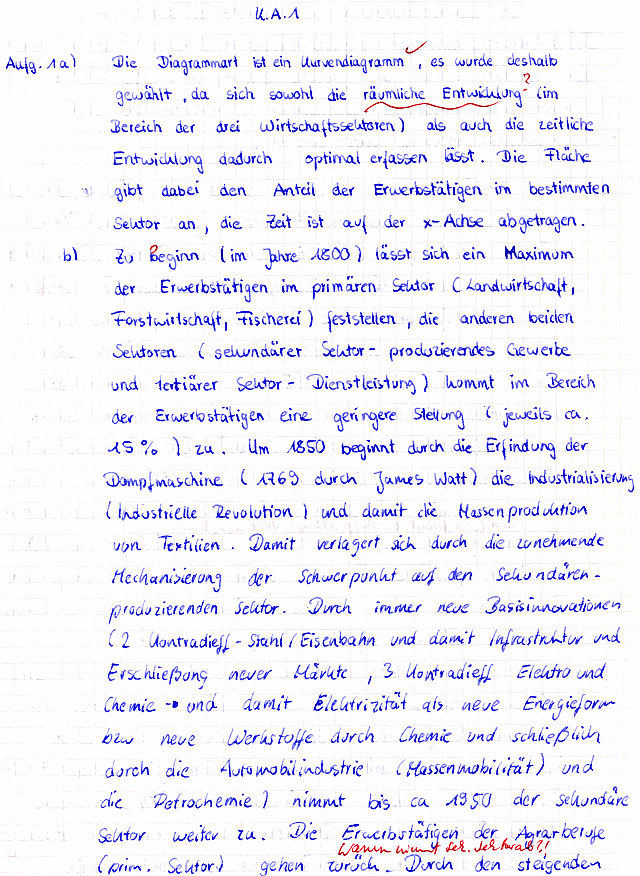 K.A.1
Aufg. 1a) Die Diagrammart ist ein Kurvendiagramm, es wurde deshalb
gewählt, da sich sowohl die räumliche Entwicklung ? (im
Bereich der drei Wirtschaftssektoren) als auch die zeitliche
Entwicklung dadurch optimal erfassen lässt. Die Fläche
gibt dabei den Anteil der Erwerbstätigen im bestimmten
Sektor an, die Zeit ist auf der x-Achse abgetragen.
b) Zu Beginn (im Jahre 1800) lässt sich ein Maximum
der Erwerbstätigen im primären Sektor (Landwirtschaft,
Forstwirtschaft, Fischerei) feststellen, die anderen beiden
Sektoren (sekundärer Sektor - produzierendes Gewerbe
und tertiärer Sektor - Dienstleistung) kommt im Bereich
der Erwerbstätigen eine geringere Stellung (jeweils ca.
15%) zu. Um 1850 beginnt durch die Erfindung der
Dampfmaschine (1769 durch James Watt) die Industrialisierung
(Industrielle Revolution) und damit die Massenproduktion
von Textilien. Damit verlagert sich durch die zunehmende
Mechanisierung der Schwerpunkt auf den Sekundären-
produzierenden Sektor. Durch immer neue Basisinnovationen
(2 Kontradieff - Stahl/Eisenbahn und damit Infrastruktur und
Erschließung neuer Märkte, 3 Kontradieff Elektro und
Chemie → und damit Elektrizität als neue Energieform
bzw neue Werkstoffe durch Chemie und schließlich
durch die Automobilindustrie (Massenmobilität) und
die Petrochemie) nimmt bis ca 1950 der sekundäre
Sektor weiter zu. Die Erwerbstätigen der Agrarberufe
Warum nimmt sek. Sektor ab?!
(prim. Sektor) gehen zurück. Durch den steigenden